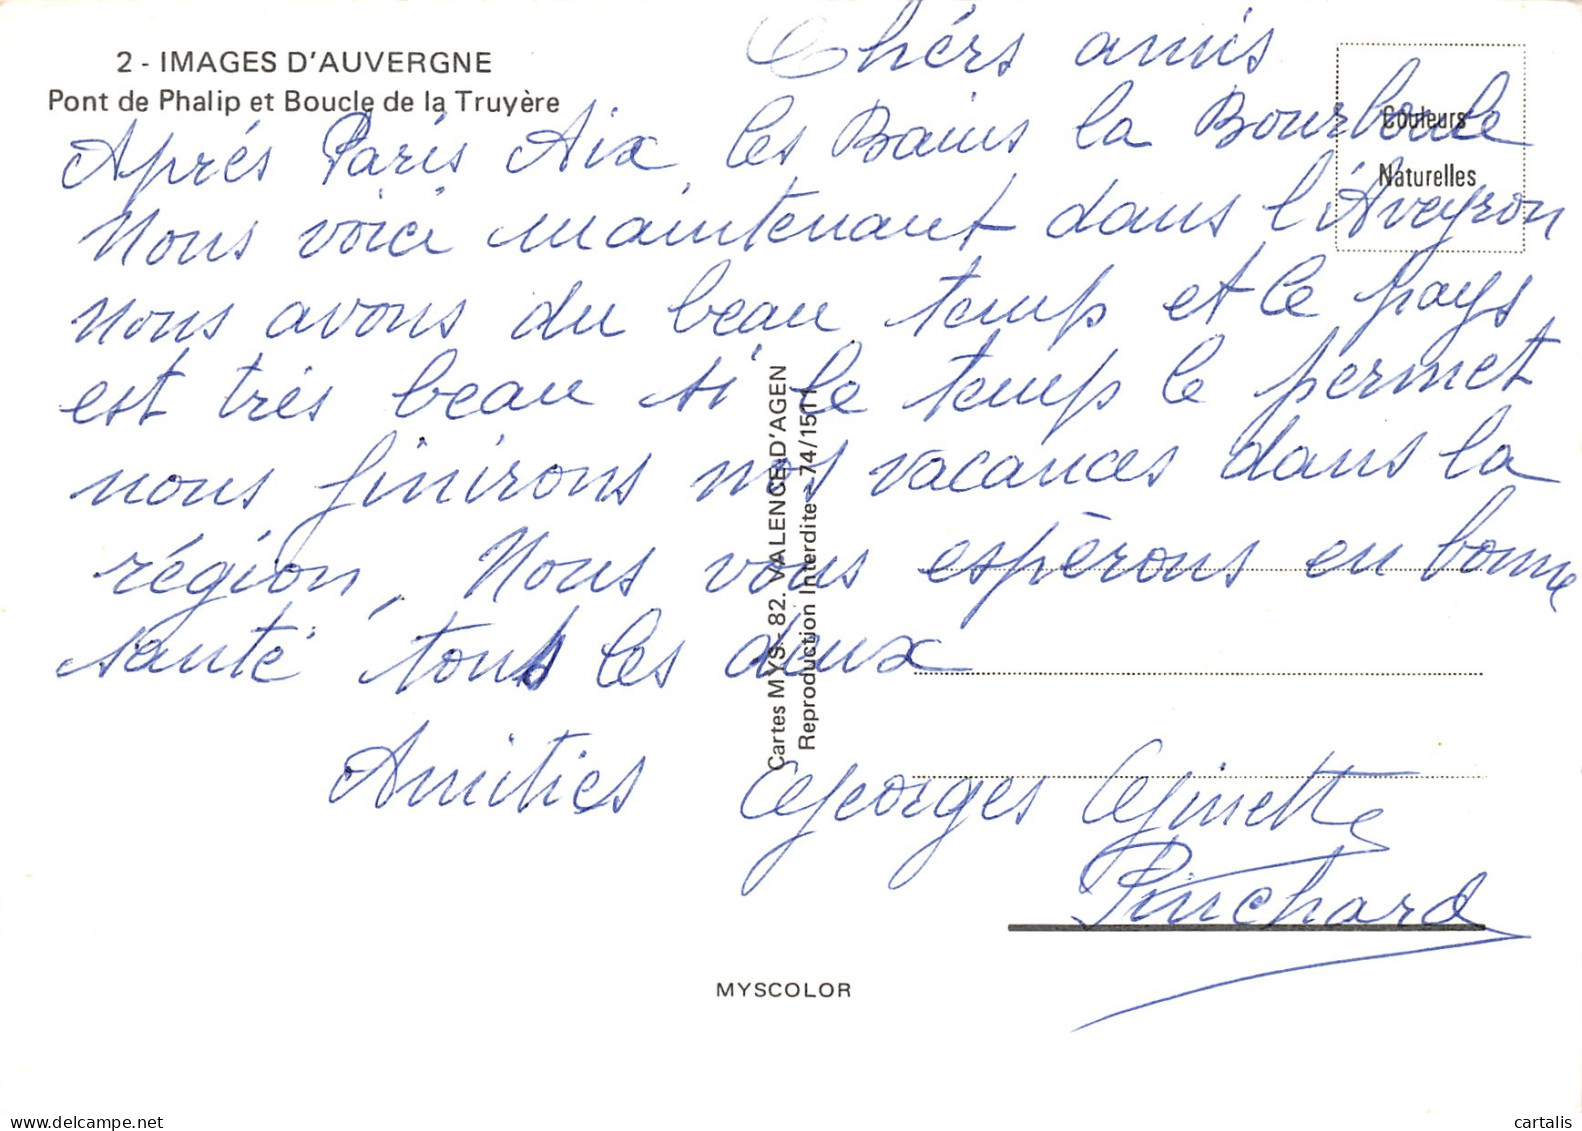 2 - IMAGES D'AUVERGNE
Pont de Phalip et Boucle de la Truyère
Couleurs
Naturelles
Chérs amis
Aprés Paris Aix les Bains la Bourboule
Nous voici maintenant dans l'Aveyron
nous avons du beau temps et le pays
est trés beau si le temps le permet
nous finirons nos vacances dans la
région. Nous vous espèrons en bonne
santé tous les deux
Amities Georges Ginette
Punchard
Cartes MYS - 82. VALENCE D'AGEN
Reproduction Interdite - 74/1511
MYSCOLOR
delcampe.net
cartalis